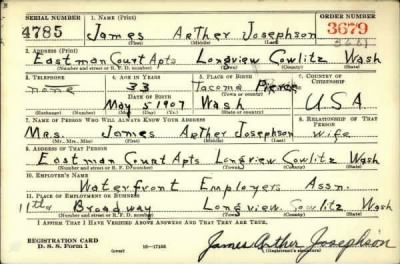 SERIAL NUMBER 1. NAME (Print) ORDER NUMBER
4785 James ArTher Josephson 3679
(First) (Middle) (Last)
2. ADDRESS (Print)
Eastman Court Apts Longview Cowlitz Wash
(Number and street or R. F. D. number) (Town) (County) (State)
3. TELEPHONE 4. AGE IN YEARS 5. PLACE OF BIRTH 6. COUNTRY OF CITIZENSHIP
none 33 Tacoma Pierce
DATE OF BIRTH (Town or county)
May 5 1907 Wash U.S.A
(Exchange) (Number) (Mo.) (Day) (Yr.) (State or country)
7. NAME OF PERSON WHO WILL ALWAYS KNOW YOUR ADDRESS 8. RELATIONSHIP OF THAT PERSON
Mrs. James ArTher Josephson wife
(Mr., Mrs., Miss) (First) (Middle) (Last)
9. ADDRESS OF THAT PERSON
Eastman Court Apts Longview Cowlitz Wash
(Number and street or R. F. D. number) (Town) (County) (State)
10. EMPLOYER'S NAME
Waterfront Employers Assn.
11. PLACE OF EMPLOYMENT OR BUSINESS
11th Broadway Longview Cowlitz Wash
(Number and street or R. F. D. number) (Town) (County) (State)
I AFFIRM THAT I HAVE VERIFIED ABOVE ANSWERS AND THAT THEY ARE TRUE.
REGISTRATION CARD
D. S. S. Form 1 (over) 16—17105 James Arther Josephson
(Registrant's signature)